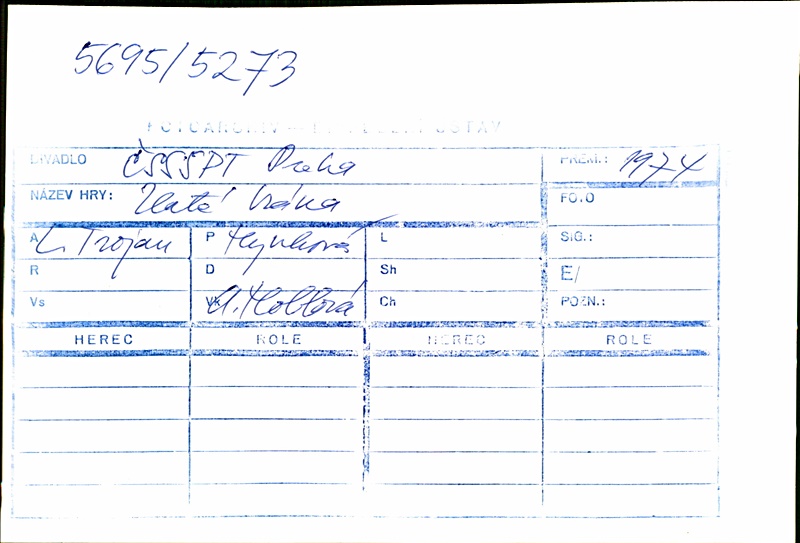 5695/5273
FOTOARCHIV — DIVADELNÍ ÚSTAV
DIVADLO ČSSSPT Praha PREM.: 1974
NÁZEV HRY: Zlatá brána FOTO
A L. Trojan P Hynková L SIG.:
R D Sh E/
Vs Vk Ch POZN.:
HEREC ROLE HEREC ROLE